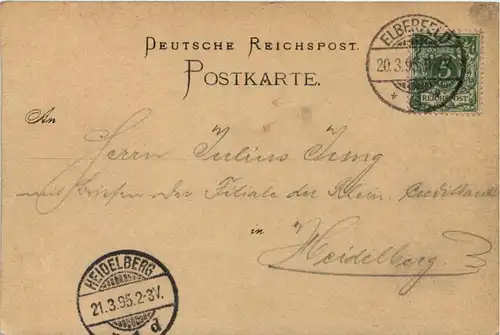 DEUTSCHE REICHSPOST.
POSTKARTE.
ELBERFELD
20.3.95
5
REICHSPOST
An
Herrn Julius Jung
der Filiale der Rhein. Creditbank
in
Heidelberg.
HEIDELBERG
21.3.95.2-3V.
d